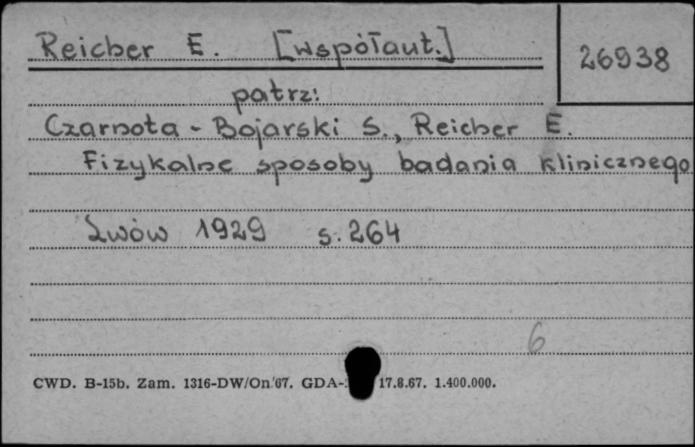 Reicher E. [współaut.]
26938
patrz:
Czarnota - Bojarski S., Reicher E.
Fizykalne sposoby badania klinicznego
Lwów 1929 s. 264
6
CWD. B-15b. Zam. 1316-DW/On/67. GDA- 17.8.67. 1.400.000.